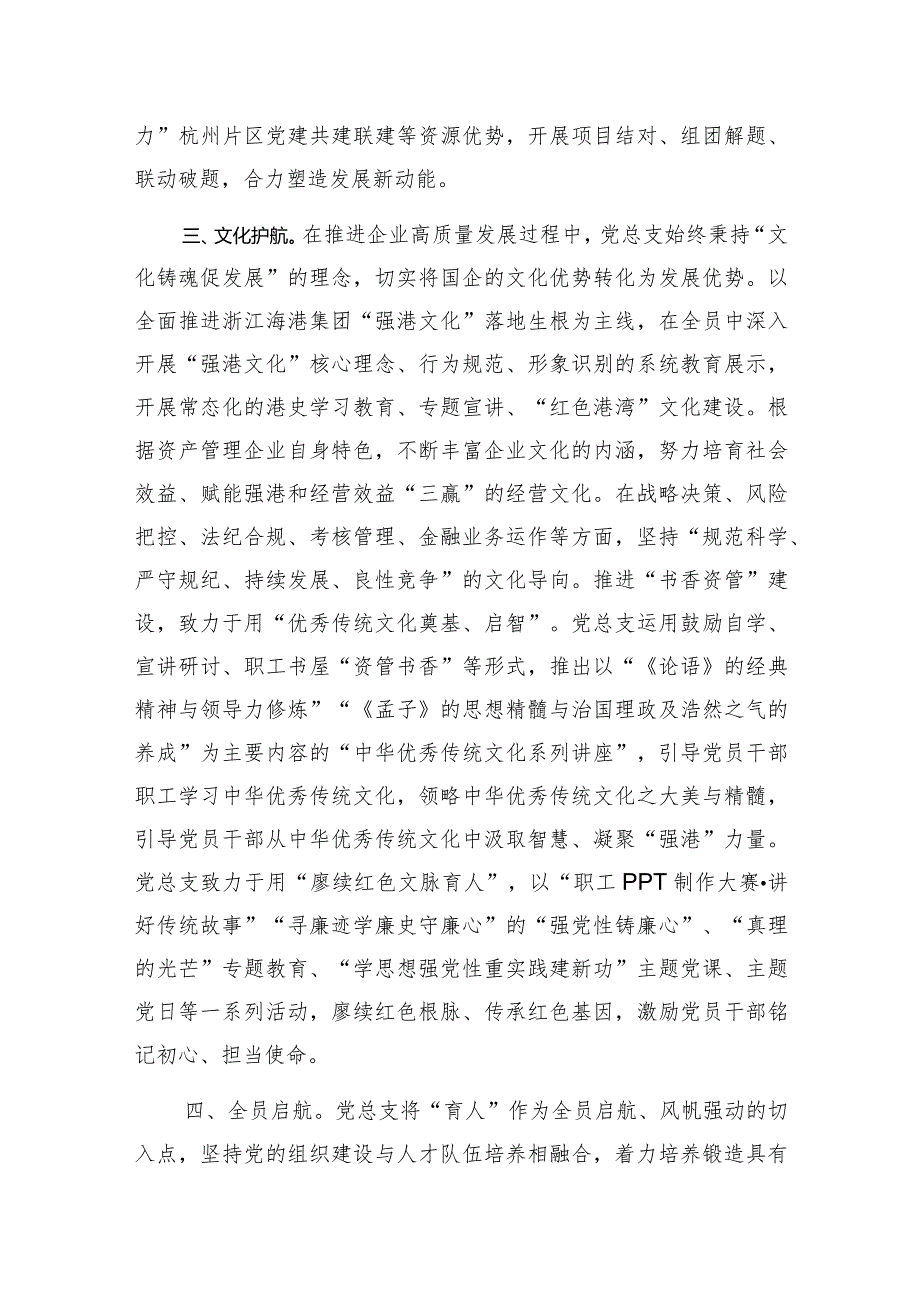 力”杭州片区党建共建联建等资源优势，开展项目结对、组团解题、
联动破题，合力塑造发展新动能。
三、文化护航。在推进企业高质量发展过程中，党总支始终秉持“文
化铸魂促发展”的理念，切实将国企的文化优势转化为发展优势。以
全面推进浙江海港集团“强港文化”落地生根为主线，在全员中深入
开展“强港文化”核心理念、行为规范、形象识别的系统教育展示，
开展常态化的港史学习教育、专题宣讲、“红色港湾”文化建设。根
据资产管理企业自身特色，不断丰富企业文化的内涵，努力培育社会
效益、赋能强港和经营效益“三赢”的经营文化。在战略决策、风险
把控、法纪合规、考核管理、金融业务运作等方面，坚持“规范科学、
严守规纪、持续发展、良性竞争”的文化导向。推进“书香资管”建
设，致力于用“优秀传统文化奠基、启智”。党总支运用鼓励自学、
宣讲研讨、职工书屋“资管书香”等形式，推出以“《论语》的经典
精神与领导力修炼”“《孟子》的思想精髓与治国理政及浩然之气的
养成”为主要内容的“中华优秀传统文化系列讲座”，引导党员干部
职工学习中华优秀传统文化，领略中华优秀传统文化之大美与精髓，
引导党员干部从中华优秀传统文化中汲取智慧、凝聚“强港”力量。
党总支致力于用“廖续红色文脉育人”，以“职工PPT制作大赛•讲
好传统故事”“寻廉迹学廉史守廉心”的“强党性铸廉心”、“真理
的光芒”专题教育、“学思想强党性重实践建新功”主题党课、主题
党日等一系列活动，廖续红色根脉、传承红色基因，激励党员干部铭
记初心、担当使命。
四、全员启航。党总支将“育人”作为全员启航、风帆强动的切
入点，坚持党的组织建设与人才队伍培养相融合，着力培养锻造具有